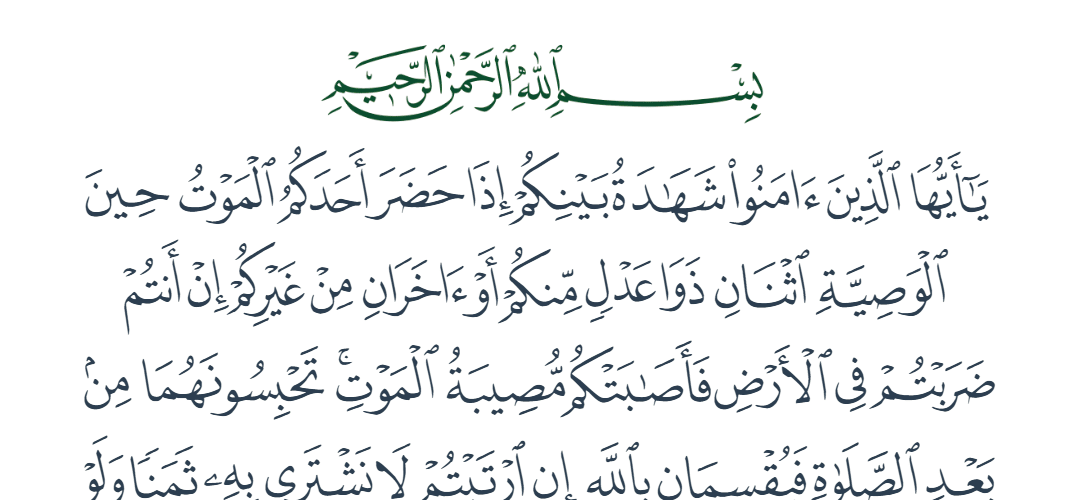 بِسْمِ ٱللَّهِ ٱلرَّحْمَٰنِ ٱلرَّحِيمِ
يَٰٓأَيُّهَا ٱلَّذِينَ ءَامَنُوا۟ شَهَٰدَةُ بَيْنِكُمْ إِذَا حَضَرَ أَحَدَكُمُ ٱلْمَوْتُ حِينَ
ٱلْوَصِيَّةِ ٱثْنَانِ ذَوَا عَدْلٍ مِّنكُمْ أَوْ ءَاخَرَانِ مِنْ غَيْرِكُمْ إِنْ أَنتُمْ
ضَرَبْتُمْ فِى ٱلْأَرْضِ فَأَصَٰبَتْكُم مُّصِيبَةُ ٱلْمَوْتِ ۚ تَحْبِسُونَهُمَا مِنۢ
بَعْدِ ٱلصَّلَوٰةِ فَيُقْسِمَانِ بِٱللَّهِ إِنِ ٱرْتَبْتُمْ لَا نَشْتَرِى بِهِۦ ثَمَنًا وَلَوْ